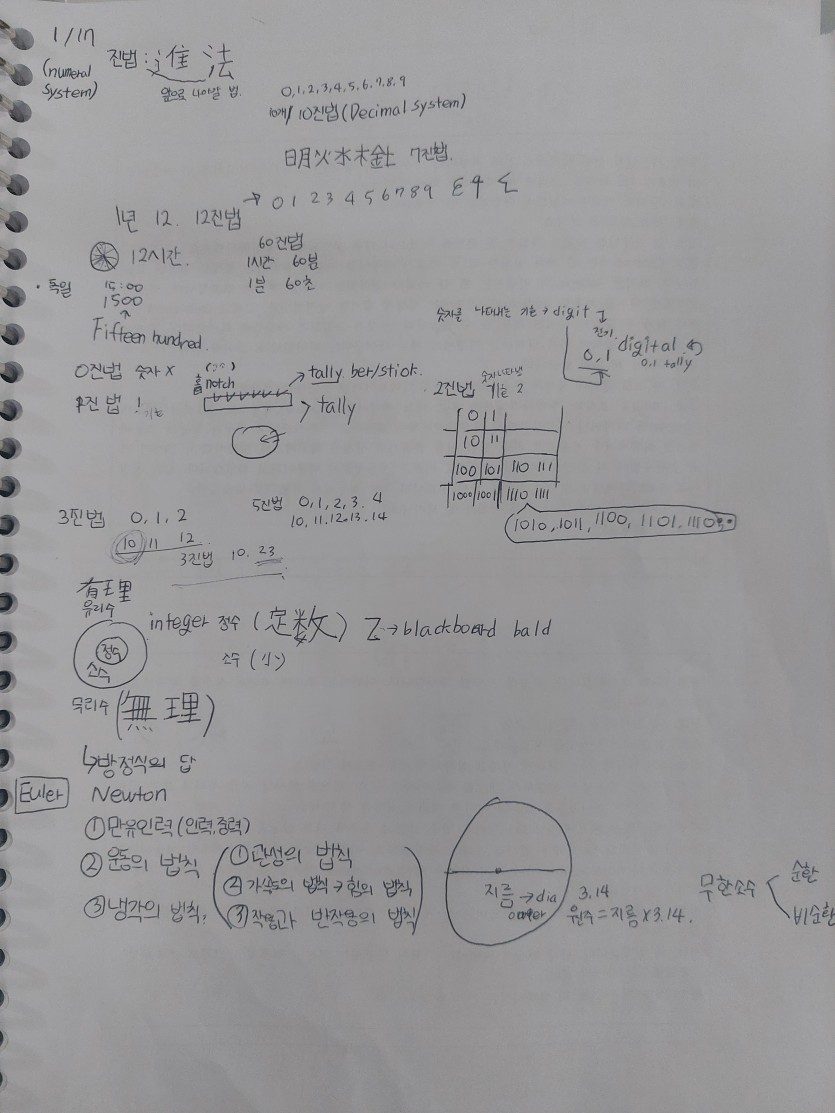 1/17
(numeral system)
진법: 進法
앞으로 나아갈 법.
0,1,2,3,4,5,6,7,8,9
10개/10진법(Decimal system)
明火水木金土 7진법.
1년 12. 12진법
→ 0 1 2 3 4 5 6 7 8 9
12시간.
60진법
1시간 60분
1분 60초
• 독일
15:00
1500
↑
Fifteen hundred.
숫자를 나타내는 기호→digit
전기
0,1
digital
0,1 tally
0진법 숫자 X
notch
→tally. ber/stick.
tally
진법 ! 기호
2진법 기호 2
0 1
10 11
100 101 110 111
1000 1001 1110 1111
1010, 1011, 1100, 1101, 1110
3진법 0, 1, 2
10 11 12
3진법 10. 23
5진법 0, 1, 2, 3. 4
10, 11. 12. 13. 14
有理
유리수
정수
소수
integer 정수 (定数) Z→blackboard bald
소수 (小)
무리수 (無理)
↳방정식의 답
Euler
Newton
①만유인력(인력,중력)
②운동의 법칙
①관성의 법칙
②가속도의 법칙→힘의 법칙
③작용과 반작용의 법칙
③냉각의 법칙.
지름→dia
3.14
원주=지름×3.14.
무한소수
순환
비순환